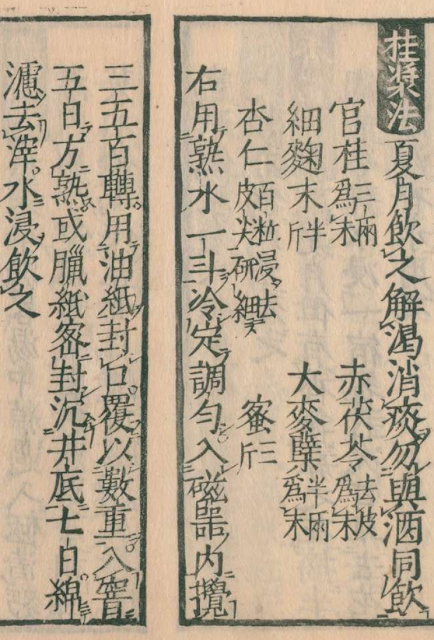 桂漿法 夏月飲之解渴消痰勿與酒同飲
官桂三兩爲末 赤茯苓去皮爲末
細麴末半斤 大麥蘖半兩爲末
杏仁百粒浸去皮尖研細 蜜三斤
右用熟水一斗冷定調勻入磁器内攪
三五百轉用油紙封口覆以數重入窨
五日方熟或臘紙密封沉井底七日綿
濾去滓水浸飲之